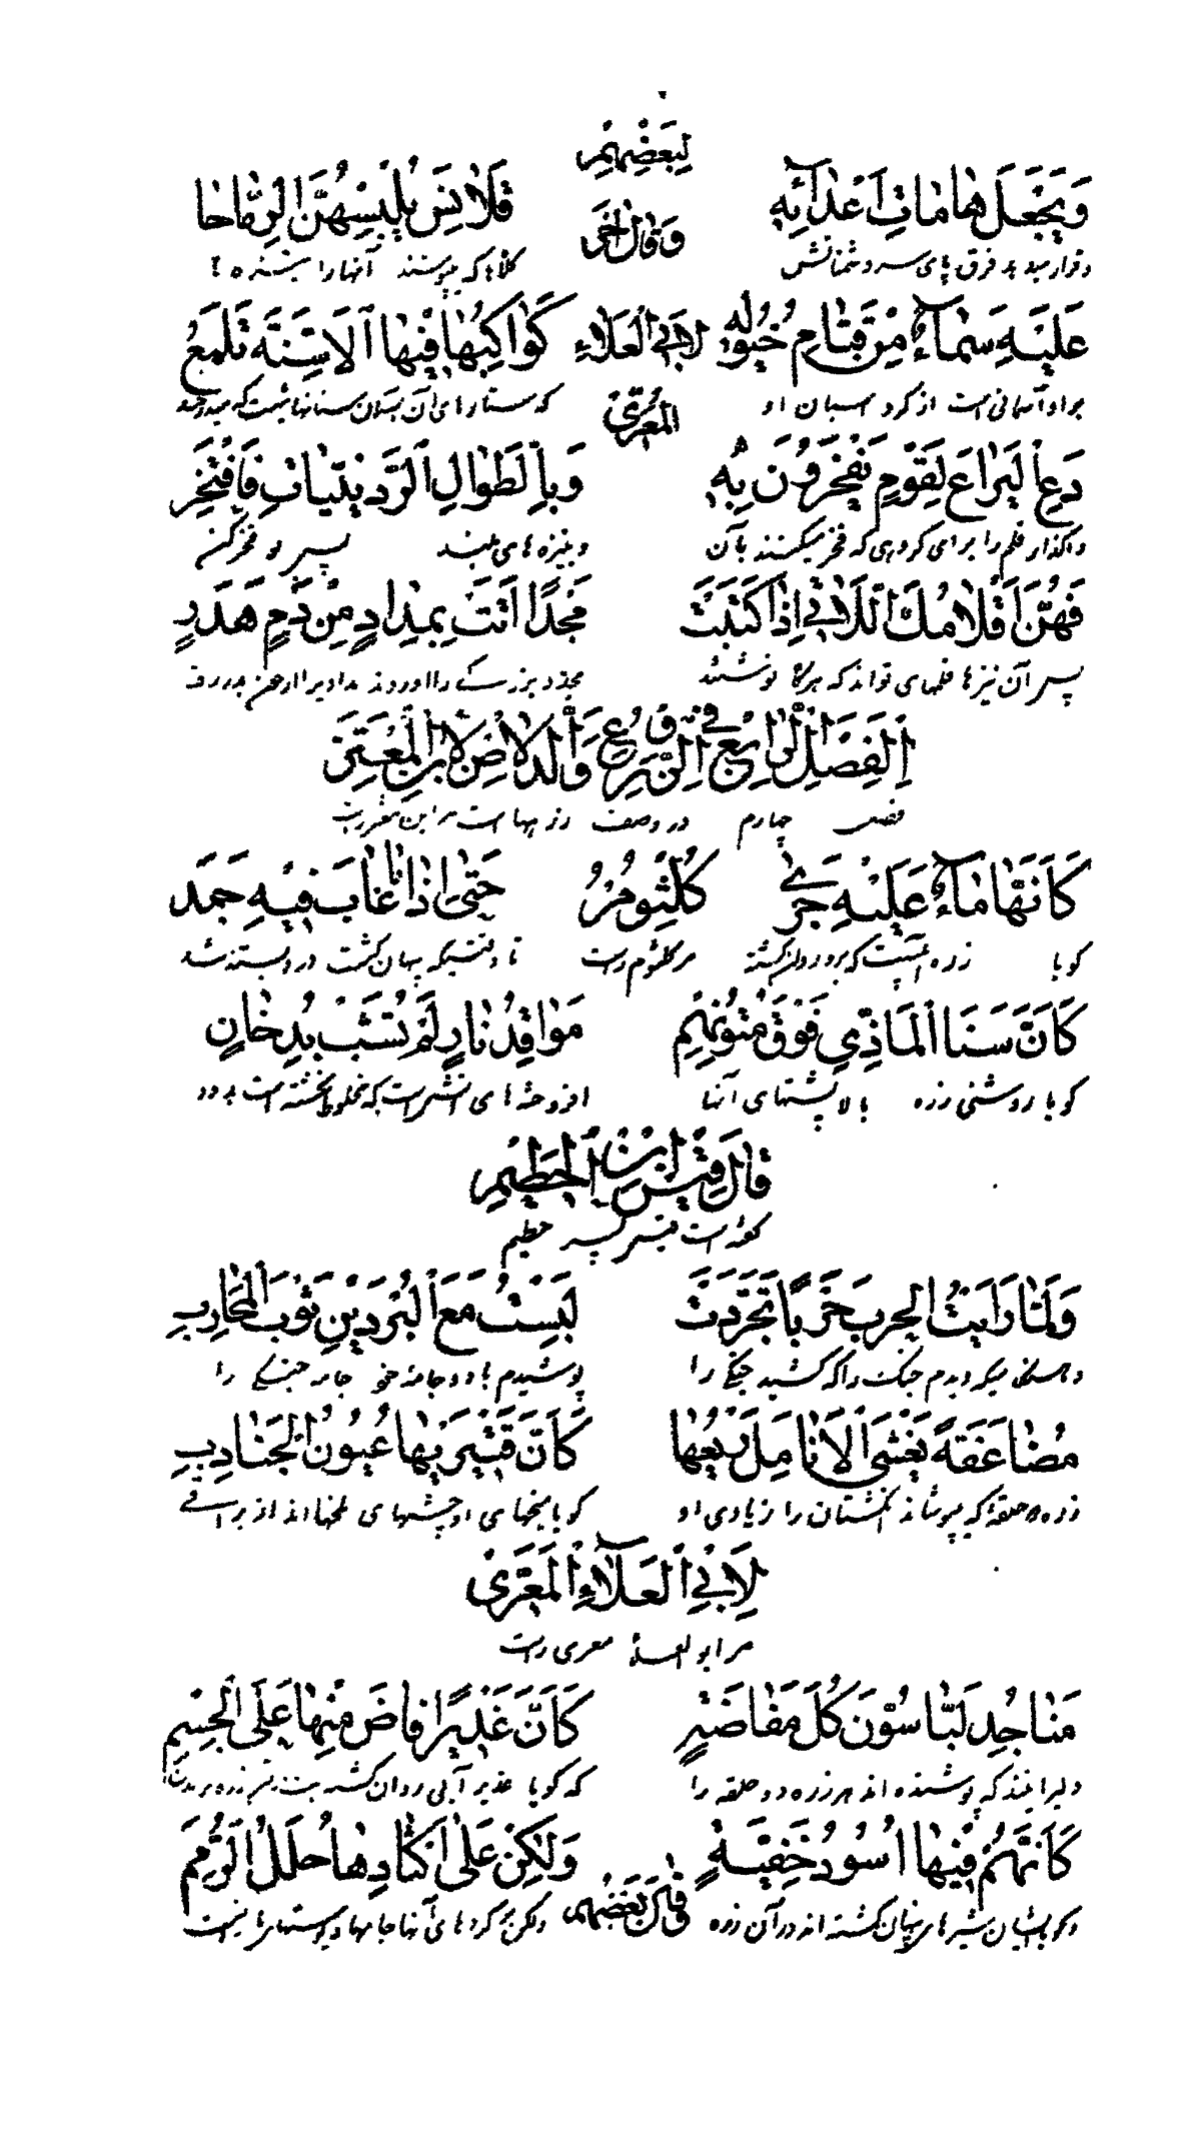 لِبَعْضِهِمْ
وَيَجْعَلُ هَامَاتِ اَعْدَآئِهِ قَلَانِسَ يُلْبِسُهُنَّ الرِّمَاحَا
وقرار میدهد فرق های سر دشمنانش کلاه که بپوشند آنها را
وَقَالَ آخَر
عَلَيْهِ سَمَآءٌ مِنْ قَتَامِ خُيُولِهِ كَوَاكِبُهَا فِيْهَا الْاَسِنَّةُ تَلْمَعُ
بر او آسمانی است از کرد اسبان او که ستارهای آن
لِاَبِي الْعَلَاءِ الْمَعَرِّيْ
دَعِ الْيَرَاعَ لِقَوْمٍ يَفْخَرُوْنَ بِهِ وَبِالطِّوَالِ الرُّدَيْنِيَّاتِ فَافْتَخِرِ
واکذار قلم را برای کروهی که فخر میکنند بآن و بنیزه های بلند پس تو فخر کن
فَهُنَّ اَقْلَامُكَ اللَّاتِيْ اِذَا كَتَبَتْ مَجْدًا اَتَتْ بِمِدَادٍ مِنْ دَمٍ هَدَرٍ
پس آن نیزها قلمهای تواند که هرگاه نوشتند مجد و بزرگی را آوردند
اَلْفَصْلُ الرَّابِعُ فِي الدِّرْعِ وَالدِّلَاصِ لِابْنِ الْمُعْتَزِّ
فصل چهارم در وصف زره ها است
كَاَنَّهَا مَآءٌ عَلَيْهِ جَرٰى حَتّٰى اِذَا مَا غَابَ فِيْهِ جَمَدَ
کویا زره آبیست که بر او روان کشته تا وقتیکه پنهان کشت در او بسته شد
كُلْثُومُ
مر کلثوم راست
كَاَنَّ سَنَا الْمَاذِيِّ فَوْقَ مُتُونِهِمْ مَوَاقِدُ نَارٍ لَمْ تُشَبْ بِدُخَانٍ
کویا روشنی زره بالا پشتهای آنها افروخته های آتش است که مخلوط نکشته است بدود
قَالَ قَيْسُ ابْنُ الْخَطِيْمِ
گفته است قیس پسر خطیم
وَلَمَّا رَاَيْتُ الْحَرْبَ حَرْبًا تَجَرَّدَتْ لَبِسْتُ مَعَ الْبُرْدَيْنِ ثَوْبَ الْمُحَارِبِ
دیدم جنک را که جنکی را پوشیدم با دو جامهٔ خود جامه جنکی را
مُضَاعَفَةً يَغْشَى الْاَنَامِلَ رَيْعُهَا كَاَنَّ قَتِيْرَيْهَا عُيُوْنُ الْجَنَادِبِ
زره دو حلقه که میپوشاند انکشتان را زیادی او کویا میخهای او چشمهای ملخها اند از براقی
لِاَبِي الْعَلَآءِ الْمَعَرِّيْ
مر ابو العلاء معری راست
مَنَاجِدُ لَبَّاسُوْنَ كُلَّ مُفَاضَةٍ كَاَنَّ غَدِيْرًا فَاضَ مِنْهَا عَلَى الْجِسْمِ
دلیرانند که پوشنده اند هر زره دو حلقه را که کویا غدیر آبی روان کشته است
كَاَنَّهُمُ فِيْهَا اُسُوْدُ خَفِيَّةٍ وَلٰكِنْ عَلٰى اَكْتَادِهَا حُلَلُ الرُّقْمِ
کویا ایشان شیرهای پنهان کشته اند در آن زره
قَالَ بَعْضُهُمْ